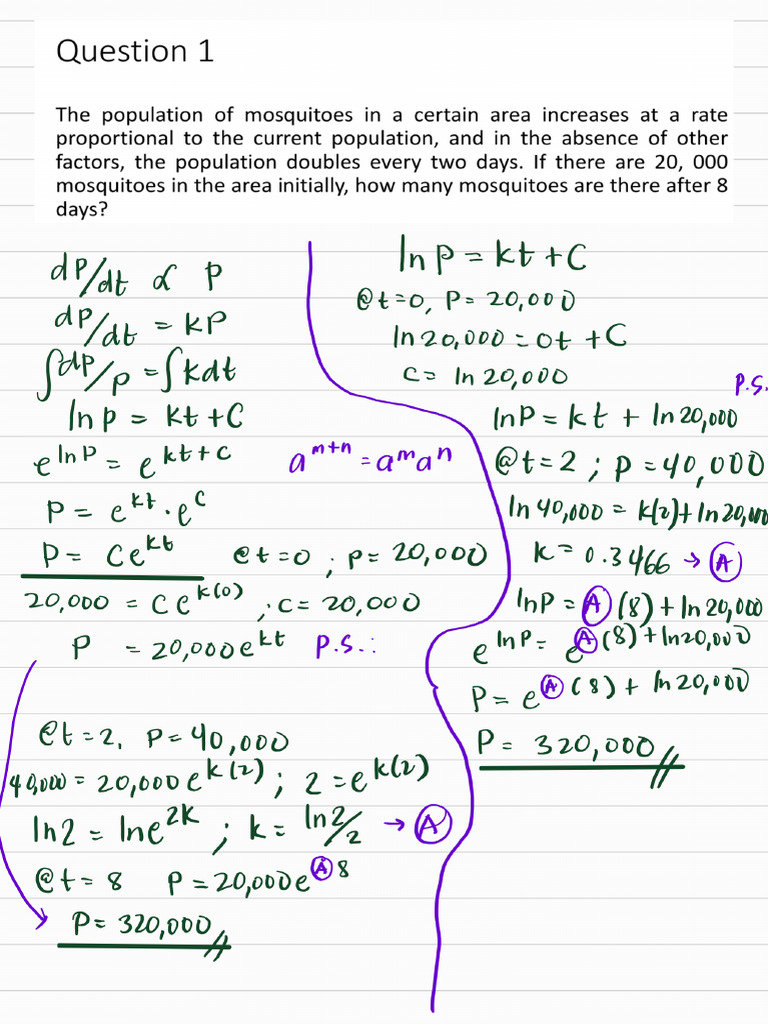 Question 1
The population of mosquitoes in a certain area increases at a rate
proportional to the current population, and in the absence of other
factors, the population doubles every two days. If there are 20, 000
mosquitoes in the area initially, how many mosquitoes are there after 8
days?
dP/dt ∝ P
dP/dt = kP
∫dP/P = ∫kdt
ln P = kt + C
e^ln P = e^kt+c
a^m+n = a^m a^n
P = e^kt · e^c
P = Ce^kt
@t=0 ; P = 20,000
20,000 = Ce^k(0) ; C = 20,000
P = 20,000e^kt P.S.:
@t=2, P=40,000
40,000 = 20,000e^k(2) ; 2 = e^k(2)
ln2 = lne^2k ; k = ln2/2 → A
@t=8 P = 20,000e^A8
P = 320,000
ln P = kt + C
@t=0, P = 20,000
ln 20,000 = 0t + C
C = ln 20,000
P.S.
lnP = kt + ln20,000
@t=2 ; P = 40,000
ln 40,000 = k(2) + ln 20,000
k = 0.3466 → A
lnP = A(8) + ln 20,000
e^lnP = e^A(8)+ln20,000
P = e^A(8) + ln 20,000
P = 320,000